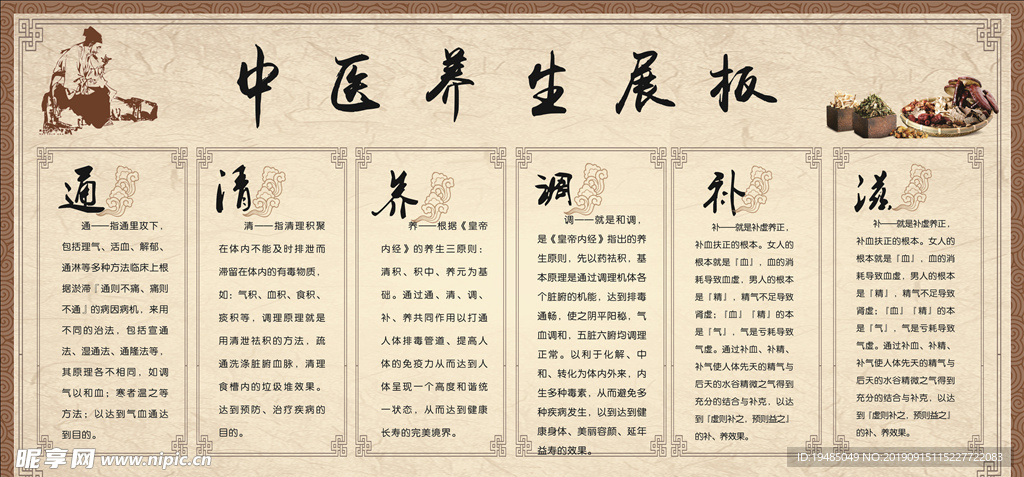 中医养生展板
通
通——指通里攻下，
包括理气、活血、解郁、
通淋等多种方法临床上根
据淤滞『通则不痛、痛则
不通』的病因病机，来用
不同的治法，包括宣通
法、湿通法、通隆法等，
其原理各不相同，如调
气以和血；寒者温之等
方法；以达到气血通达
到目的。
清
清——指清理积聚
在体内不能及时排泄而
滞留在体内的有毒物质，
如：气积、血积、食积、
痰积等，调理原理就是
用清泄祛积的方法，疏
通洗涤脏腑血脉，清理
食槽内的垃圾堆效果。
达到预防、治疗疾病的
目的。
养
养——根据《皇帝
内经》的养生三原则：
清积、积中、养元为基
础。通过通、清、调、
补、养共同作用以打通
人体排毒管道、提高人
体的免疫力从而达到人
体呈现一个高度和谐统
一状态，从而达到健康
长寿的完美境界。
调
调——就是和调，
是《皇帝内经》指出的养
生原则，先以药祛积，基
本原理是通过调理机体各
个脏腑的机能，达到排毒
通畅，使之阴平阳秘，气
血调和，五脏六腑均调理
正常。以利于化解、中
和、转化为体内外来，内
生多种毒素，从而避免多
种疾病发生，以到达到健
康身体、美丽容颜、延年
益寿的效果。
补
补——就是补虚养正，
补血扶正的根本。女人的
根本就是『血』，血的消
耗导致血虚，男人的根本
是『精』，精气不足导致
肾虚；『血』『精』的本
是『气』，气是亏耗导致
气虚。通过补血、补精、
补气使人体先天的精气与
后天的水谷精微之气得到
充分的结合与补充，以达
到『虚则补之，预则益之』
的补、养效果。
滋
补——就是补虚养正，
补血扶正的根本。女人的
根本就是『血』，血的消
耗导致血虚，男人的根本
是『精』，精气不足导致
肾虚；『血』『精』的本
是『气』，气是亏耗导致
气虚。通过补血、补精、
补气使人体先天的精气与
后天的水谷精微之气得到
充分的结合与补充，以达
到『虚则补之，预则益之』
的补、养效果。
昵享网 www.nipic.cn
ID:19485049 NO:20190915115227722083